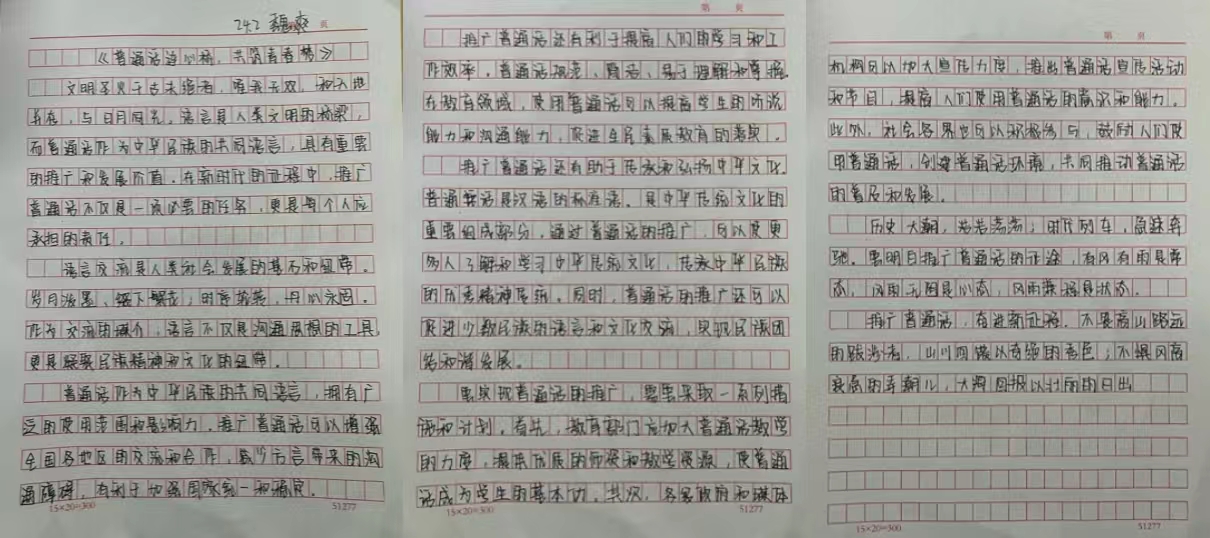 第 页
《普通话连心桥，共筑青春梦》
文明
语言是人类文明的桥梁，
而普通话作为中华民族的共同语言，具有重要
的推广和发展价值。在新时代的征程中，推广
普通话不仅是一项必要的任务，更是每个人应
承担的责任。
语言交流是人类社会发展的基本和纽带。
岁月
作为交流的媒介，语言不仅是沟通思想的工具，
更是凝聚民族精神和文化的纽带。
普通话作为中华民族的共同语言，拥有广
泛的使用范围和影响力。推广普通话可以增强
全国各地区的交流和合作，减少方言带来的沟
通障碍，有利于加强国家统一和稳定。
15×20=300
51277
第 页
推广普通话还有利于提高人们的学习和工
作效率。普通话规范、简洁、易于理解和掌握。
在教育领域，使用普通话可以提高学生的听说
能力和沟通能力，促进全民素质教育的落实。
推广普通话还有助于传承和弘扬中华文化。
是汉语的标准语。是中华传统文化的
重要组成部分，通过普通话的推广，可以使更
多人了解和学习中华传统文化，传承中华民族
的优秀精神。同时，普通话的推广还可以
促进少数民族的语言和文化交流，实现民族团
结和谐发展。
要实现普通话的推广，需要采取一系列措
施和计划，首先，教育部门应加大普通话教学
的力度，提供优质的师资和教学资源，使普通
话成为学生的基本功。其次，各级政府和媒体
15×20=300
51277
第 页
机构可以加大宣传力度，推出普通话宣传活动
和节目，提高人们使用普通话的意识和能力。
此外，社会各界也可以积极参与，鼓励人们使
用普通话，创建普通话环境，共同推动普通话
的普及和发展。
历史大潮，浩浩荡荡；时代列车，急速奔
驰。要明白推广普通话的征途，有风有雨是常
态，风雨无阻是心态，风雨兼程是状态。
推广普通话，奋进新征程。不畏高山路远
的跋涉者，山川回馈以奇绝的秀色；不惧风高
浪急的弄潮儿，大海回报以壮丽的日出
15×20=300
51277